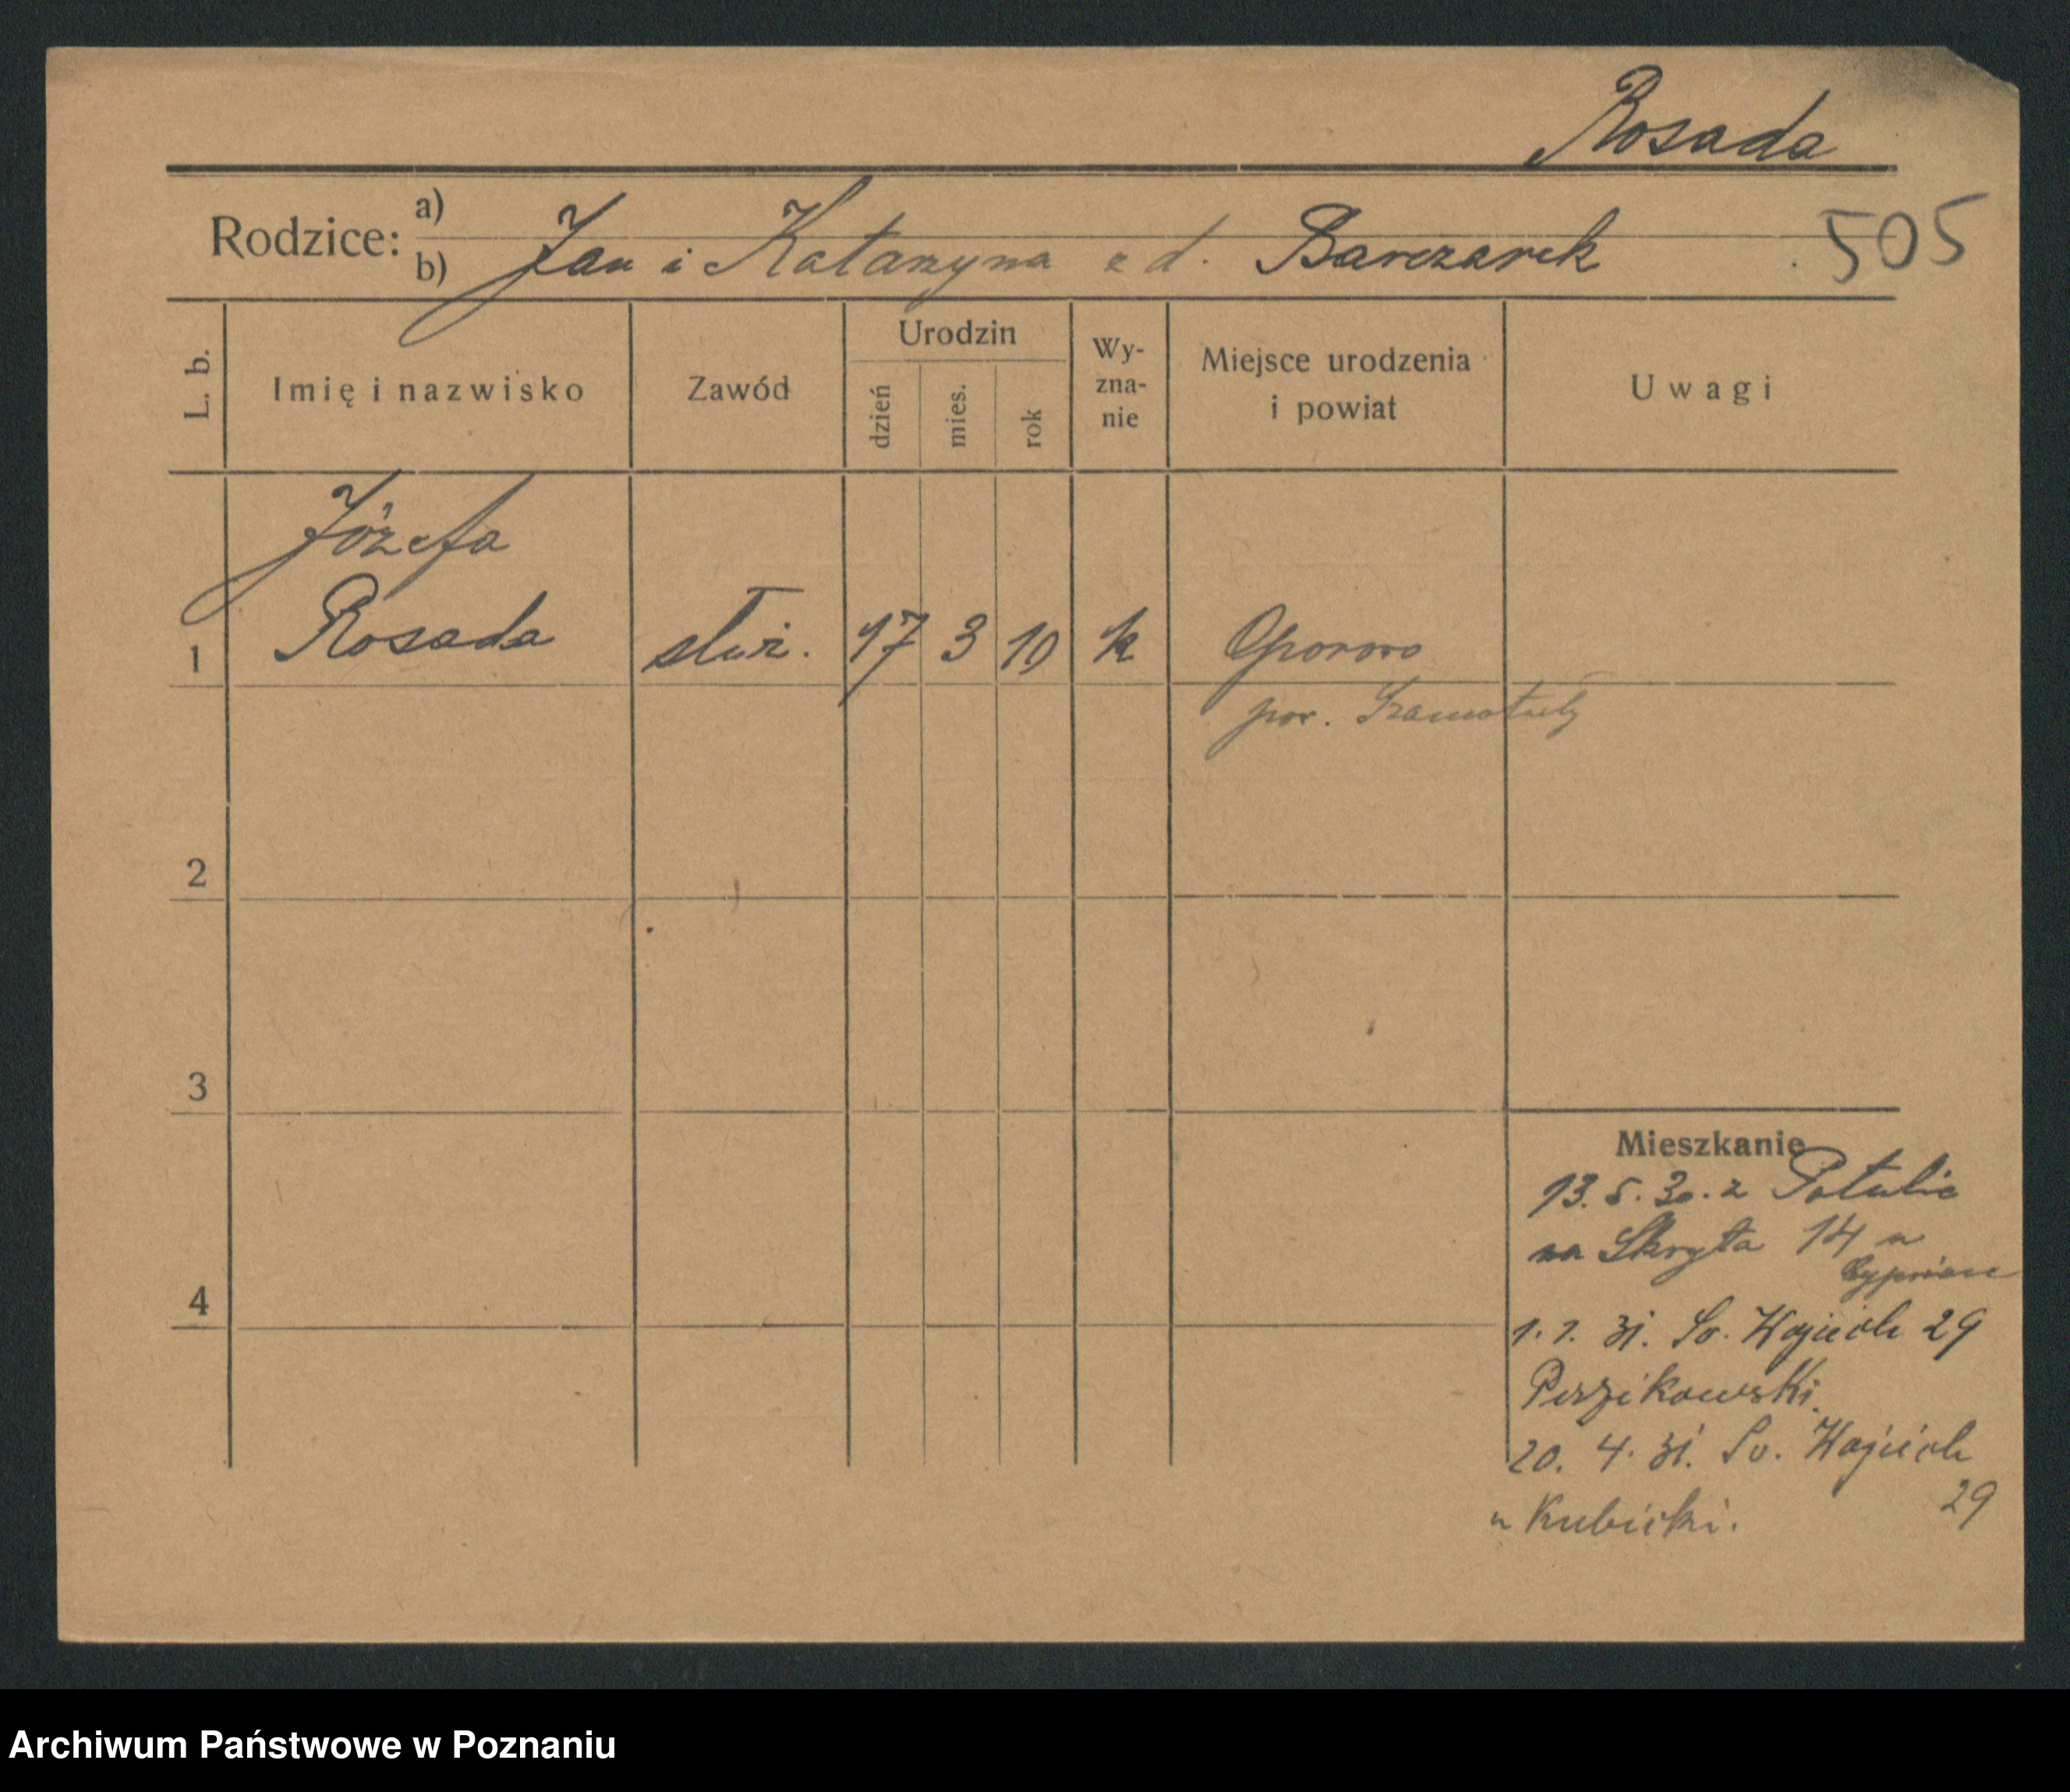 Rosada
Rodzice: a) b) Jan i Katarzyna z d. Barczarek 505
L. b. Imię i nazwisko Zawód Urodzin dzień mies. rok Wy-zna-nie Miejsce urodzenia i powiat Uwagi
Józefa
1 Rosada służ. 17 3 10 k Oporowo
pow. Szamotuły
2
3
Mieszkanie
13. 5. 30. z Potulic
na Skryta 14 u
4
1. 1. 31. Św. Wojciech 29
20. 4. 31. Św. Wojciech
29
u Kubicki.
Archiwum Państwowe w Poznaniu